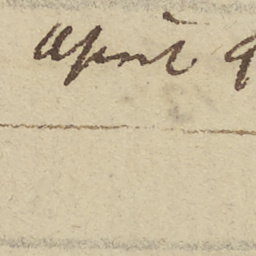 April 9